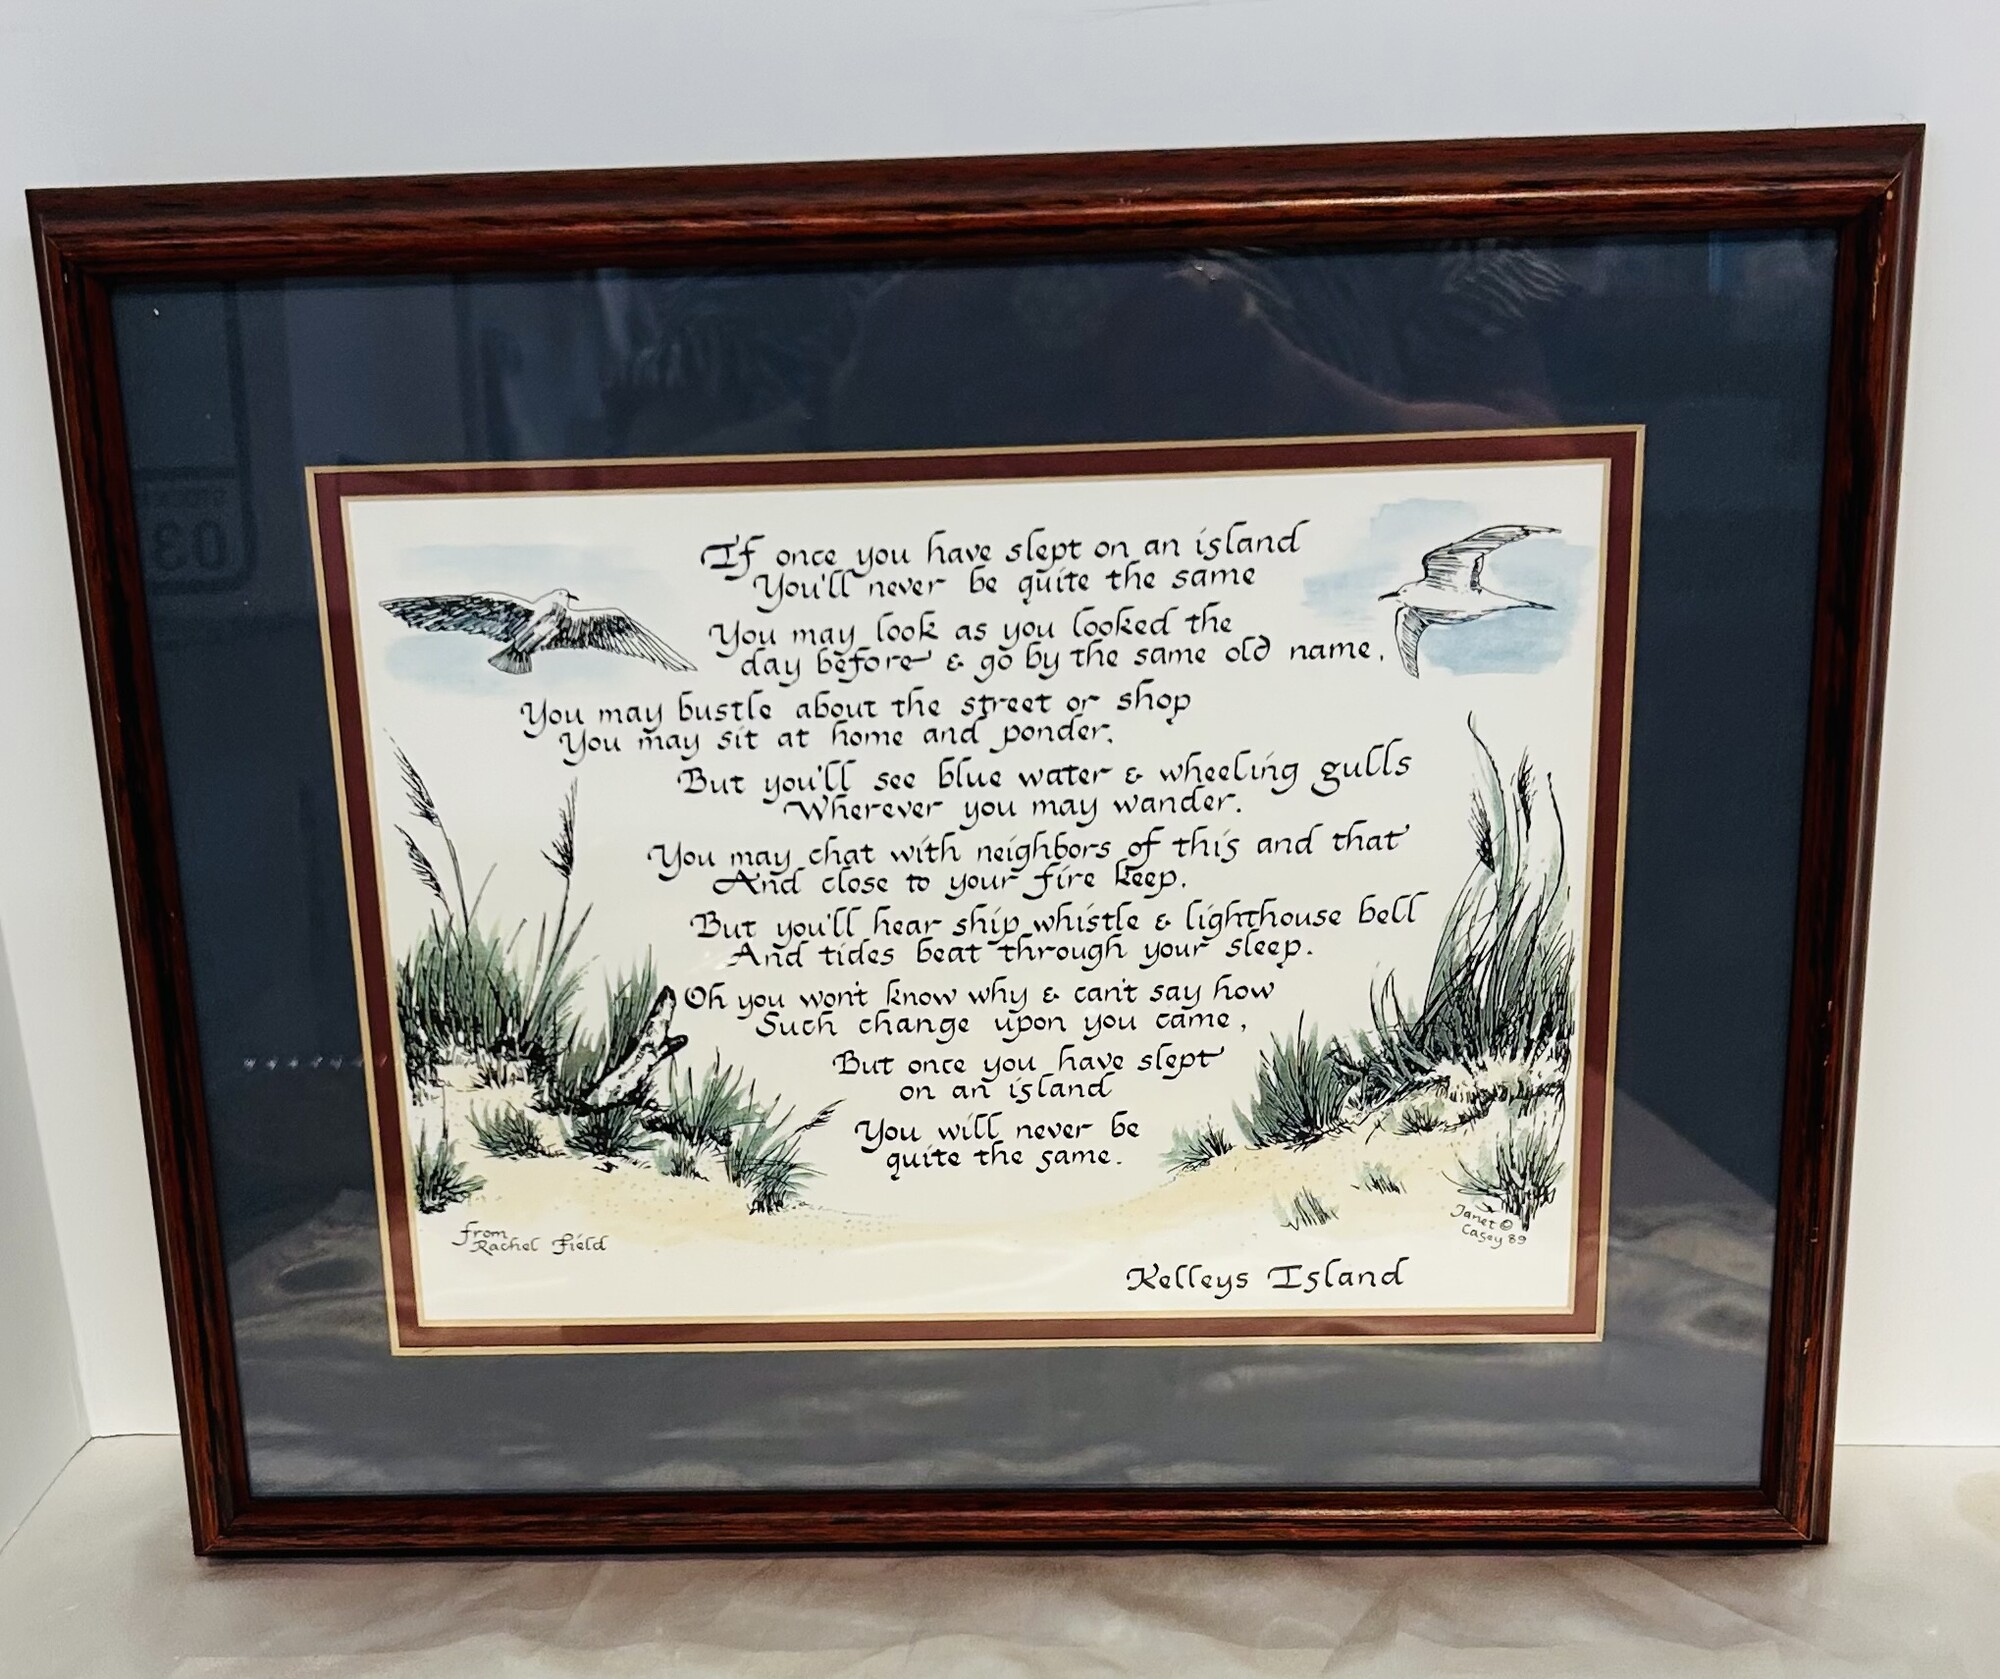 If once you have slept on an island
You'll never be quite the same
You may look as you looked the
day before & go by the same old name,
You may bustle about the street or shop
You may sit at home and ponder,
But you'll see blue water & wheeling gulls
Wherever you may wander.
You may chat with neighbors of this and that
And close to your fire keep.
But you'll hear ship whistle & lighthouse bell
And tides beat through your sleep.
Oh you won't know why & can't say how
Such change upon you came,
But once you have slept
on an island
You will never be
quite the same.
from
Rachel Field
Janet ©
Casey 89
Kelleys Island
03